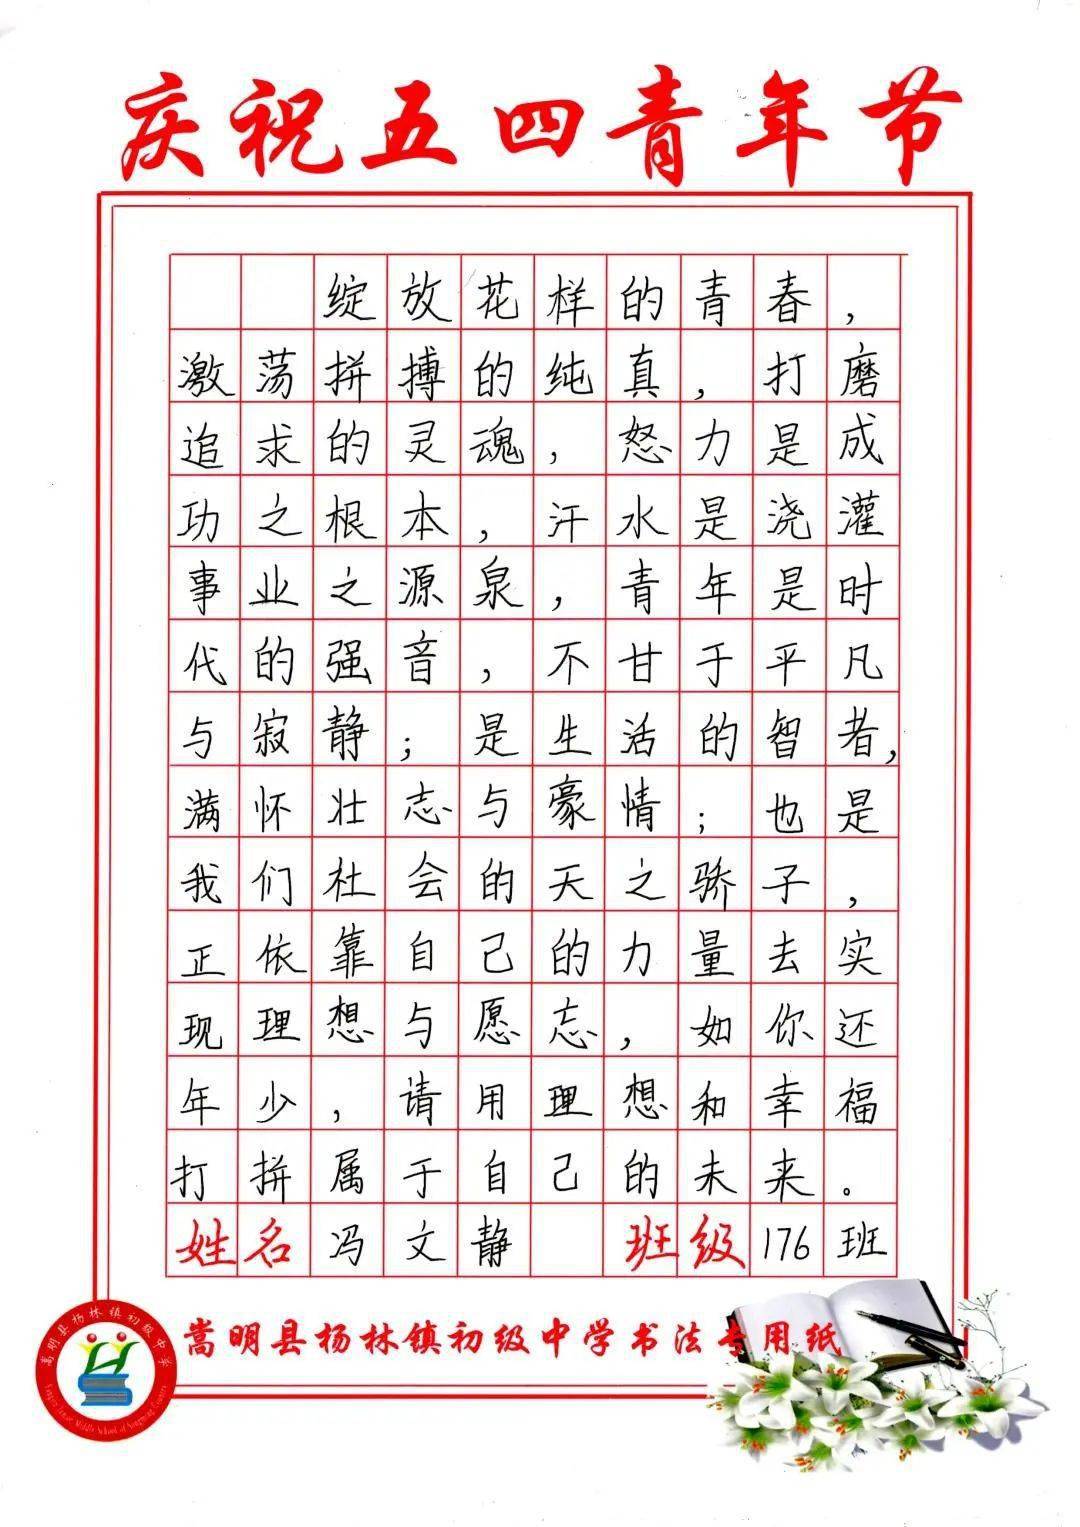 庆祝五四青年节
绽放花样的青春，
激荡拼搏的纯真，打磨
追求的灵魂，怒力是成
功之根本，汗水是浇灌
事业之源泉，青年是时
代的强音，不甘于平凡
与寂静；是生活的智者，
满怀壮志与豪情；也是
我们社会的天之骄子，
正依靠自己的力量去实
现理想与愿忘，如你还
年少，请用理想和幸福
打拼属于自己的未来。
姓名冯文静 班级176班
嵩明县杨林镇初级中学书法专用纸
嵩明县杨林镇初级中学